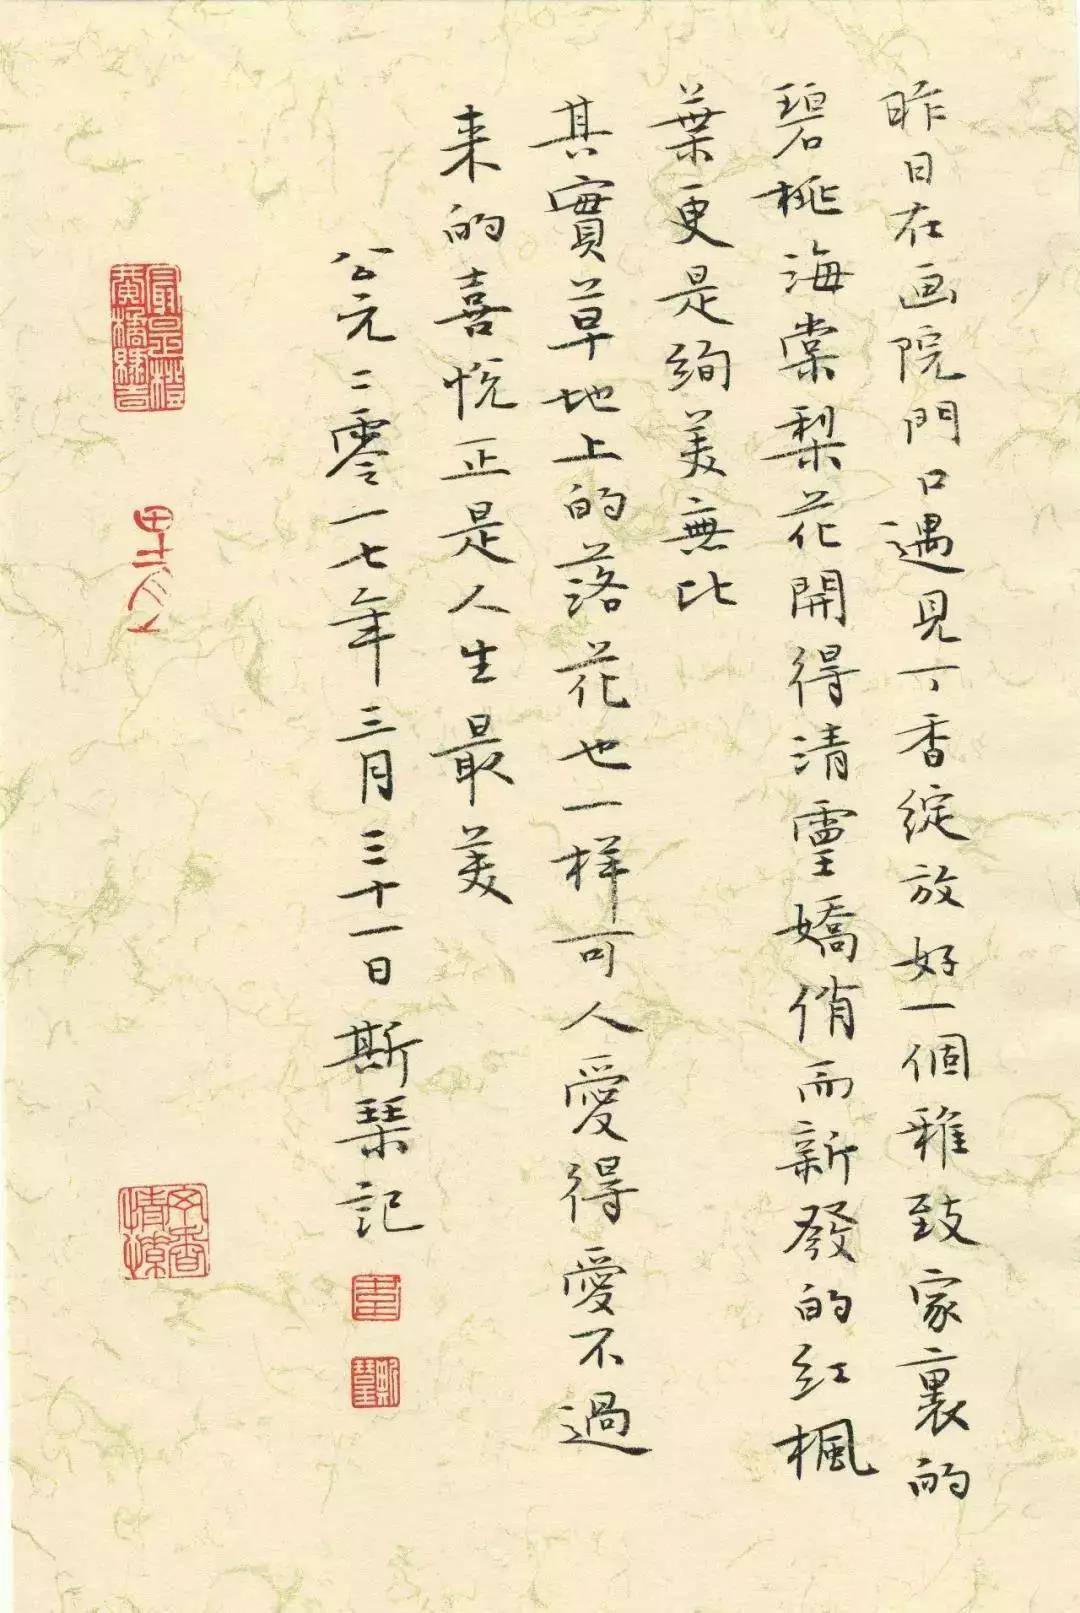 昨日在画院門口遇見丁香綻放好一個雅致家裏的
碧桃海棠梨花開得清靈嬌俏而新發的红楓
葉更是絢美無比
其實草地上的落花也一样可人愛得愛不過
来的喜悦正是人生最美
公元二零一七年三月三十一日斯琴記